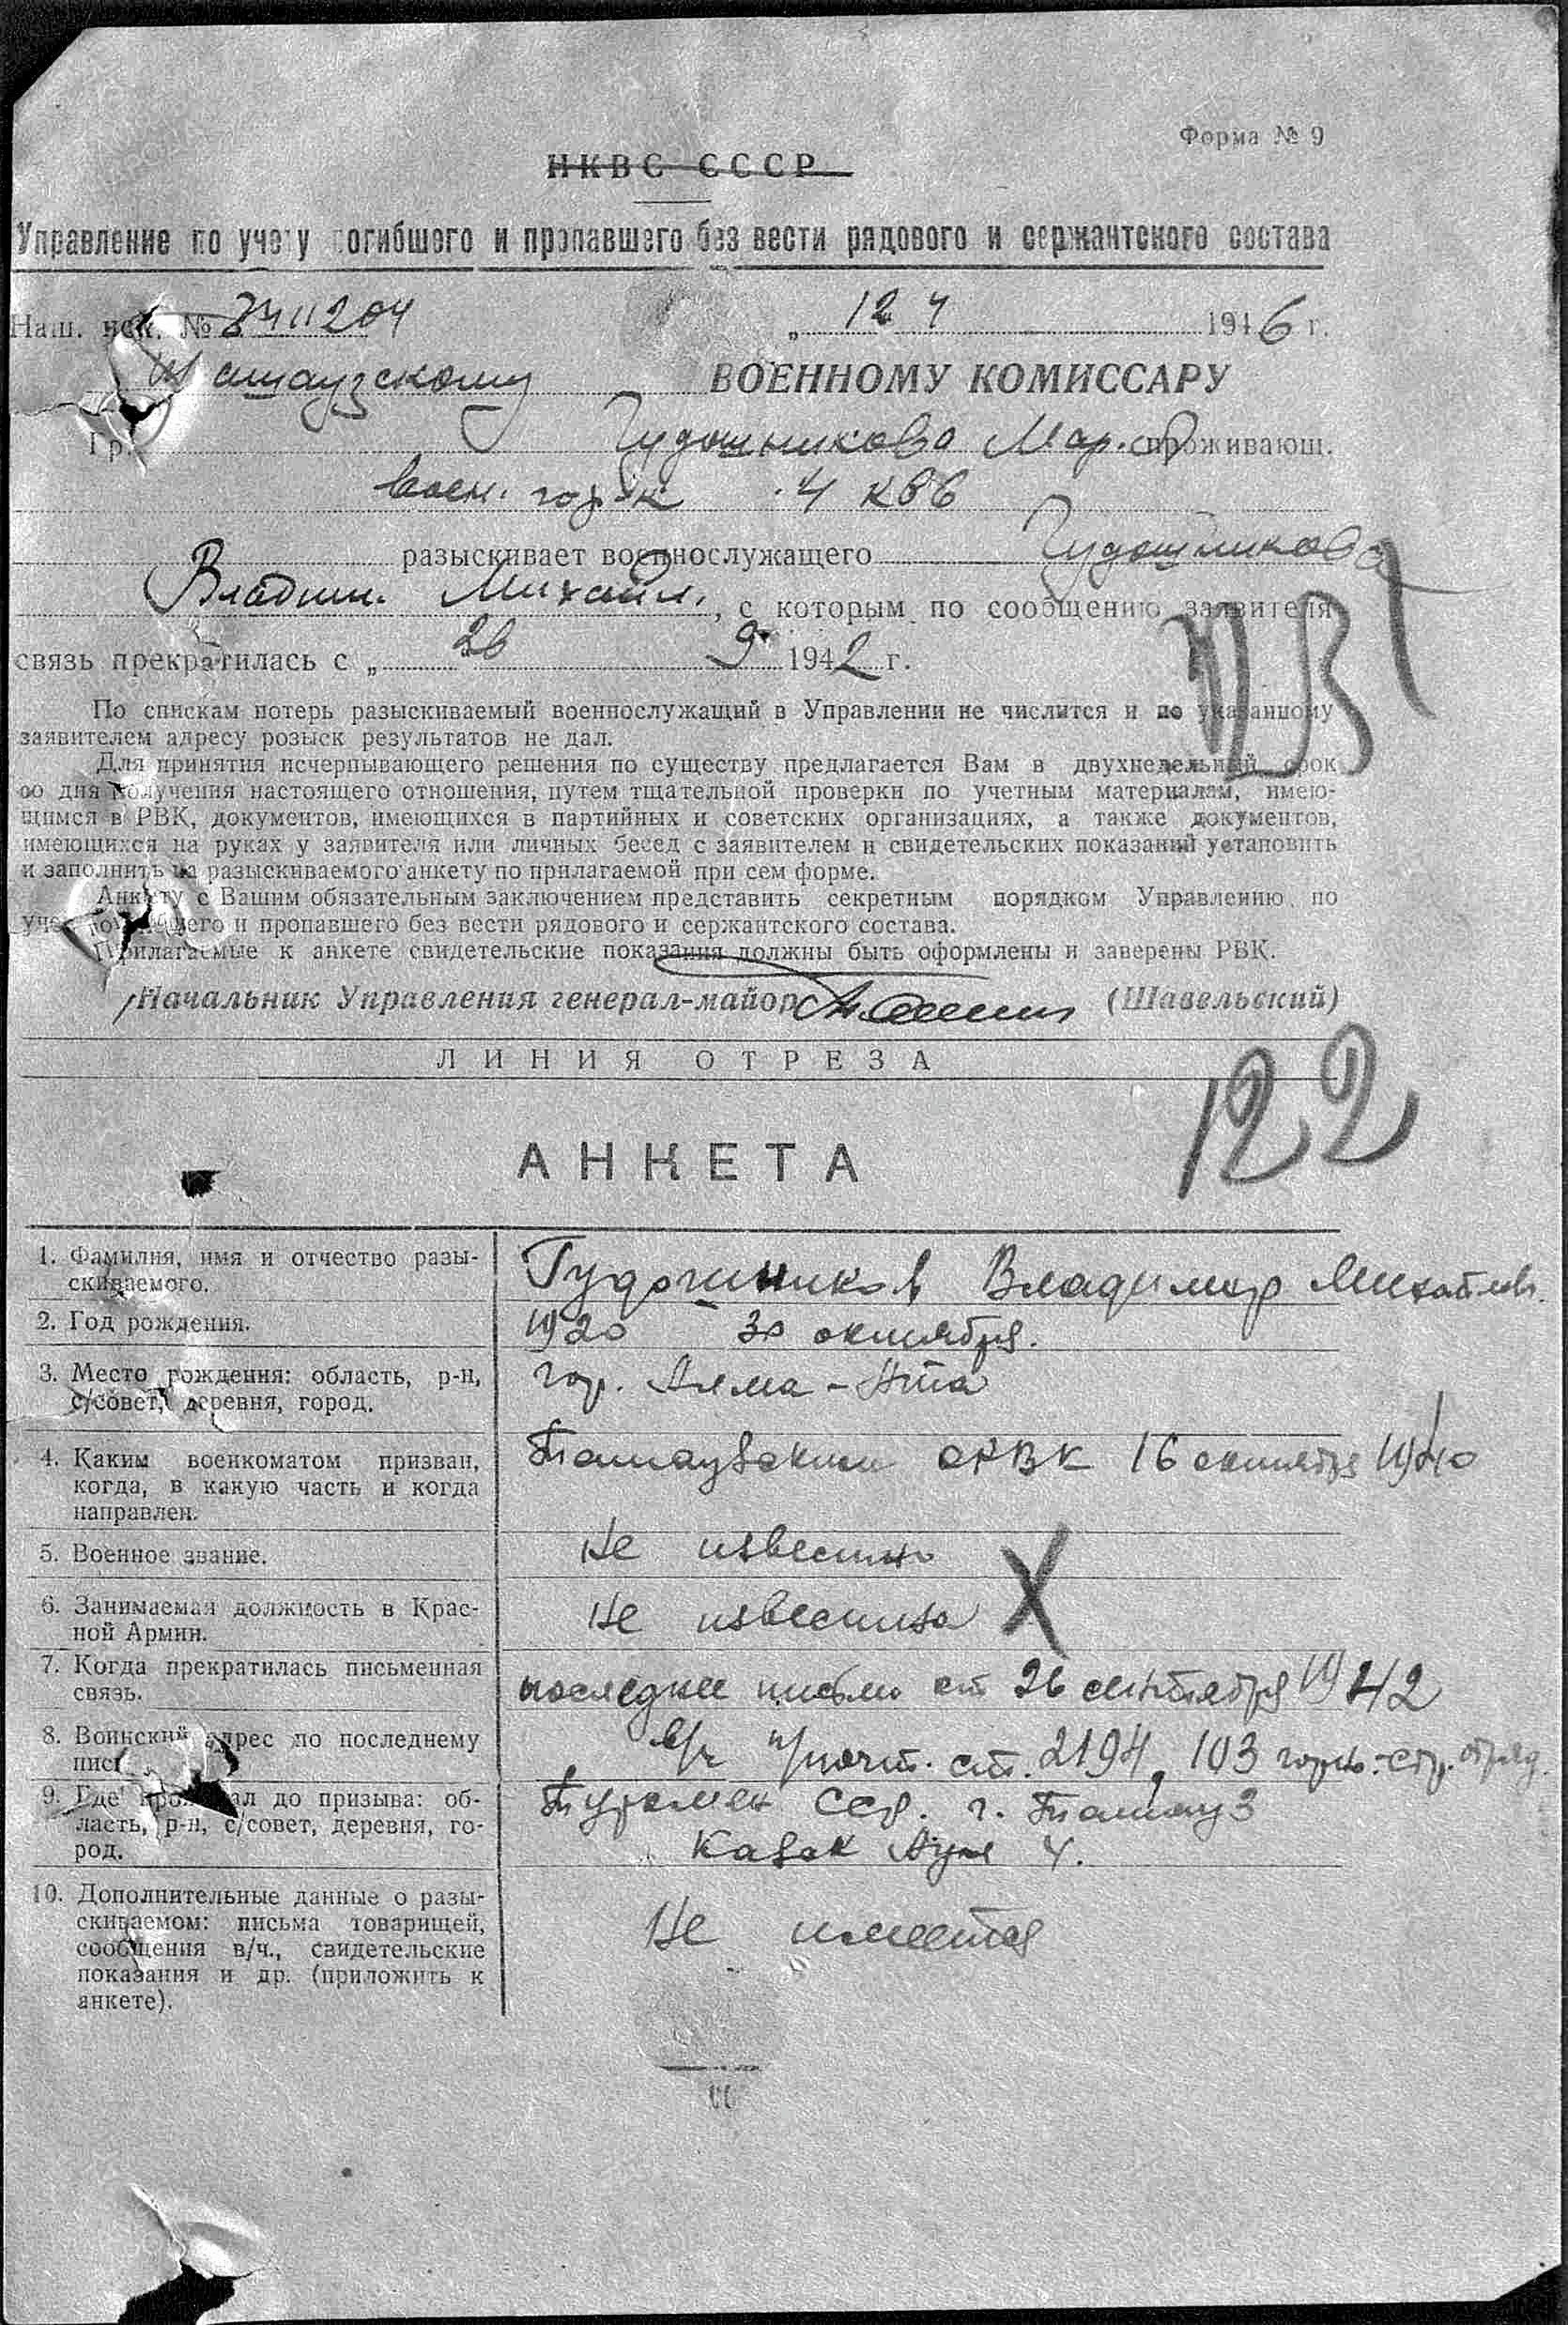 Форма № 9
НКВС СССР
Управление по учету погибшего и пропавшего без вести рядового и сержантского состава
Наш. исх. № 12 4 1946 г.
Ташаузскому ВОЕННОМУ КОМИССАРУ
Гр. Гудошникова Мар. проживающ.
воен. гор-к 4 кв 6
разыскивает военнослужащего Гудошникова
Владим. Михайл., с которым по сообщению заявителя
связь прекратилась с „ 26 9 1942 г.
По спискам потерь разыскиваемый военнослужащий в Управлении не числится и по указанному
заявителем адресу розыск результатов не дал.
Для принятия исчерпывающего решения по существу предлагается Вам в двухнедельный срок
со дня получения настоящего отношения, путем тщательной проверки по учетным материалам, имею-
щимся в РВК, документов, имеющихся в партийных и советских организациях, а также документов,
имеющихся на руках у заявителя или личных бесед с заявителем и свидетельских показаний установить
и заполнить на разыскиваемого анкету по прилагаемой при сем форме.
Анкету с Вашим обязательным заключением представить секретным порядком Управлению по
учету погибшего и пропавшего без вести рядового и сержантского состава.
Прилагаемые к анкете свидетельские показания должны быть оформлены и заверены РВК.
Начальник Управления генерал-майор (Шавельский)
ЛИНИЯ ОТРЕЗА
122
АНКЕТА
1. Фамилия, имя и отчество разы-
скиваемого.
Гудошников Владимир Михайлов.
2. Год рождения.
1920 30 октября.
3. Место рождения: область, р-н,
с/совет, деревня, город.
гор. Алма-Ата
4. Каким военкоматом призван,
когда, в какую часть и когда
направлен.
Ташаузским ОРВК 16 октября 1940
5. Военное звание.
Не известно
6. Занимаемая должность в Крас-
ной Армии.
Не известно
X
7. Когда прекратилась письменная
связь.
последнее письмо от 26 сентября 1942
8. Воинский адрес по последнему
пис
п/почт. ст. 2194, 103 горно-стр. отряд.
9. Где проживал до призыва: об-
ласть, р-н, с/совет, деревня, го-
род.
Туркмен ССР. г. Ташауз
Казак Аул 4.
10. Дополнительные данные о разы-
скиваемом: письма товарищей,
сообщения в/ч., свидетельские
показания и др. (приложить к
анкете).
Не имеется